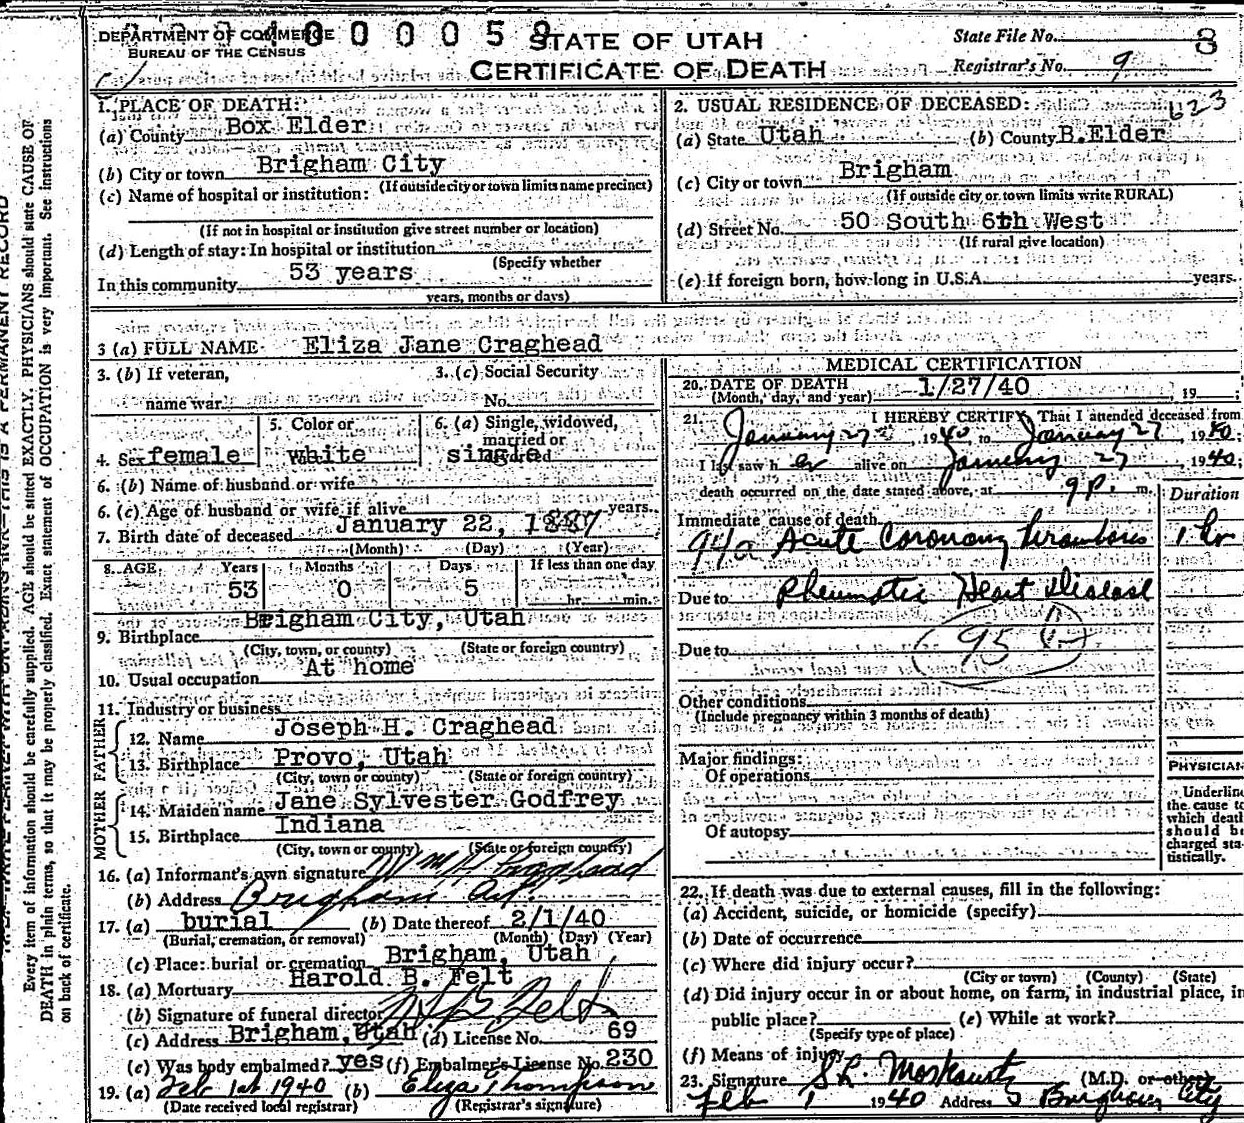 DEPARTMENT OF COMMERCE
BUREAU OF THE CENSUS
400058
STATE OF UTAH
CERTIFICATE OF DEATH
State File No. 8
Registrar's No. 9
623
1. PLACE OF DEATH:
(a) County Box Elder
(b) City or town Brigham City
(If outside city or town limits name precinct)
(c) Name of hospital or institution:
(If not in hospital or institution give street number or location)
(d) Length of stay: In hospital or institution
(Specify whether
In this community 53 years
years, months or days)
2. USUAL RESIDENCE OF DECEASED:
(a) State Utah (b) County B.Elder
(c) City or town Brigham
(If outside city or town limits write RURAL)
(d) Street No. 50 South 6th West
(If rural give location)
(e) If foreign born, how long in U.S.A. years.
3 (a) FULL NAME Eliza Jane Craghead
3. (b) If veteran,
name war
3. (c) Social Security
No.
4. Sex female
5. Color or
white
6. (a) Single, widowed,
married or
single
6. (b) Name of husband or wife
6. (c) Age of husband or wife if alive years.
7. Birth date of deceased January 22, 1887
(Month) (Day) (Year)
8. AGE Years Months Days If less than one day
53 0 5 hr. min.
9. Birthplace Brigham City, Utah
(City, town, or county) (State or foreign country)
10. Usual occupation At home
11. Industry or business
FATHER
12. Name Joseph H. Craghead
13. Birthplace Provo, Utah
(City, town or county) (State or foreign country)
MOTHER
14. Maiden name Jane Sylvester Godfrey
15. Birthplace Indiana
(City, town or county) (State or foreign country)
16. (a) Informant's own signature Craghead
(b) Address Brigham
17. (a) burial (b) Date thereof 2/1/40
(Burial, cremation, or removal) (Month) (Day) (Year)
(c) Place: burial or cremation Brigham, Utah
18. (a) Mortuary Harold B. Felt
(b) Signature of funeral director H B Felt
(c) Address Brigham, Utah (d) License No. 69
(e) Was body embalmed? yes (f) Embalmer's License No. 230
19. (a) Feb 1st 1940 (b) Eliza Thompson
(Date received local registrar) (Registrar's signature)
MEDICAL CERTIFICATION
20. DATE OF DEATH
(Month, day, and year) 1/27/40, 19
21. I HEREBY CERTIFY, That I attended deceased from
January 27, 1940, to January 27, 1940;
I last saw her alive on January 27, 1940;
death occurred on the date stated above, at 9 P. m.
Duration
Immediate cause of death
94a Acute Coronary Thrombosis 1 hr
Due to Rheumatic Heart Disease
Due to 95
Other conditions
(Include pregnancy within 3 months of death)
Major findings:
Of operations
Of autopsy
PHYSICIAN
Underline
the cause to
which death
should be
charged sta-
tistically.
22. If death was due to external causes, fill in the following:
(a) Accident, suicide, or homicide (specify)
(b) Date of occurrence
(c) Where did injury occur?
(City or town) (County) (State)
(d) Did injury occur in or about home, on farm, in industrial place, in
public place? (e) While at work?
(Specify type of place)
(f) Means of injury
23. Signature S L. Moskowitz (M.D. or other)
Feb 1 1940 Address Brigham City
Every item of information should be carefully supplied. AGE should be stated EXACTLY. PHYSICIANS should state CAUSE OF
DEATH in plain terms, so that it may be properly classified. Exact statement of OCCUPATION is very important. See instructions
on back of certificate.
THIS IS A PERMANENT RECORD